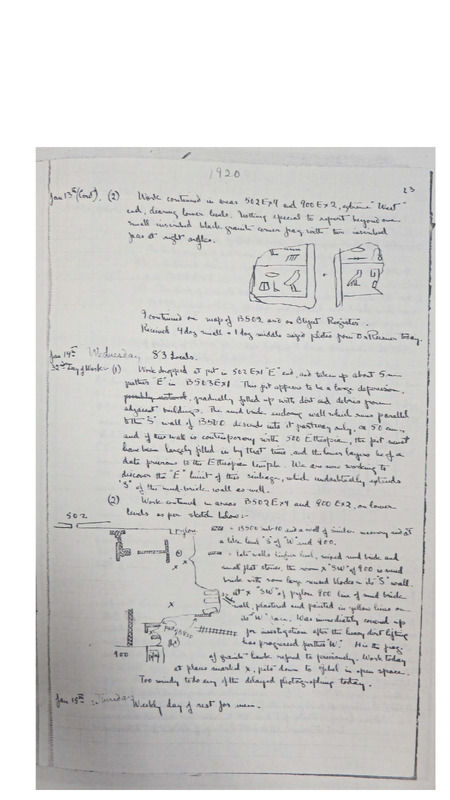 1920
23
Jan 13th (Cont). (2) Work continued in areas 502 Ex 4 and 900 Ex 2, extreme "West"
end, clearing lower levels. Nothing special to report beyond one
small inscribed black granite corner frag. with two inscribed
faces at right angles.
I continued on map of B502, and on Object Register.
Received 4 doz small + 1 doz middle sized plates from Dr Reisner today.
Jan 14th Wednesday 83 locals.
day of Work (1) Work dropped at pit in 502 Ex 1 "E" end, and taken up about 5 m
further "E" in B503 Ex 1. This pit appears to be a large depression,
gradually filled up with dirt and debris from
adjacent buildings. The mud brick enclosing wall which runs parallel
to the "S" wall of B500 descends into it part way only, ca 50 cm,
and if this wall is contemporary with 500 Ethiopian, the pit must
have been largely filled in by that time, and the lower layers be of a
date previous to the Ethiopian temple. We are now working to
discover the "E" limit of this sinkage, which undoubtedly extends
"S" of the mud-brick wall as well.
(2) Work continued in areas B502 Ex 4 and 900 Ex 2, on lower
levels as per sketch below:-
502
Pylon
= B500 and a wall of similar masonry and at
a like level "S" of "W" end 900.
= late walls higher level, mixed mud brick and
small flat stones. The room x "SW" of 900 is mud
brick with some large reused blocks in its "S" wall.
at x "SW" of pylon 900 line of mud brick
wall, plastered and painted in yellow lines on
its "W" face. Was immediately covered up
for investigation after the heavy dirt lifting
has progressed further "W". the frag.
of granite referred to previously. Work today
at places marked x, pits down to gebel in open space.
900
Too windy to do any of the delayed photographing today.
Jan 15th Weekly day of rest for men.